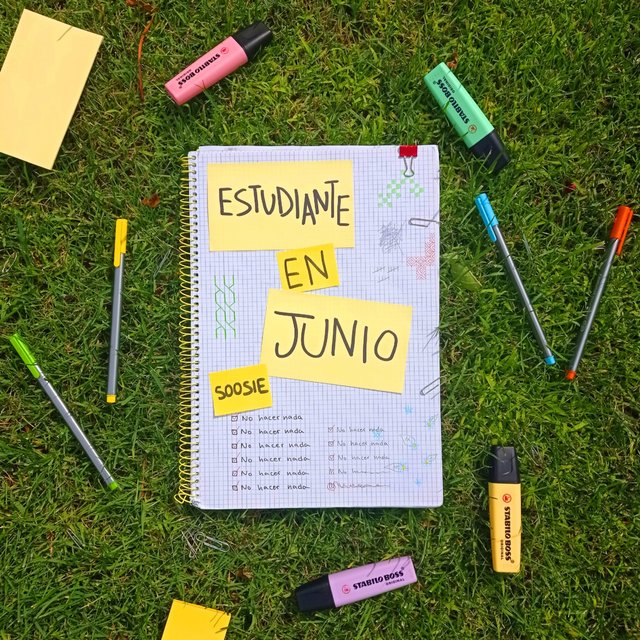 STABILO BOSS
ORIGINAL
STABILO BOSS
ORIGINAL
ESTUDIANTE
EN
JUNIO
SOOSIE
No hacer nada
No hacer nada
No hacer nada
No hacer nada
No hacer nada
No hacer nada
No hacer nada
No hacer nada
No hacer nada
No hacer
STABILO BOSS
ORIGINAL
STABILO BOSS
ORIGINAL